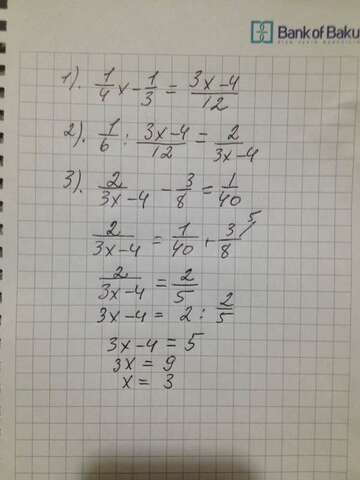 Bank of Baku
1). 1/4 x - 1/3 = (3x-4)/12
2). 1/6 : (3x-4)/12 = 2/(3x-4)
3). 2/(3x-4) - 3/8 = 1/40
2/(3x-4) = 1/40 + 3/8 ⁵
2/(3x-4) = 2/5
3x-4 = 2 : 2/5
3x-4 = 5
3x = 9
x = 3